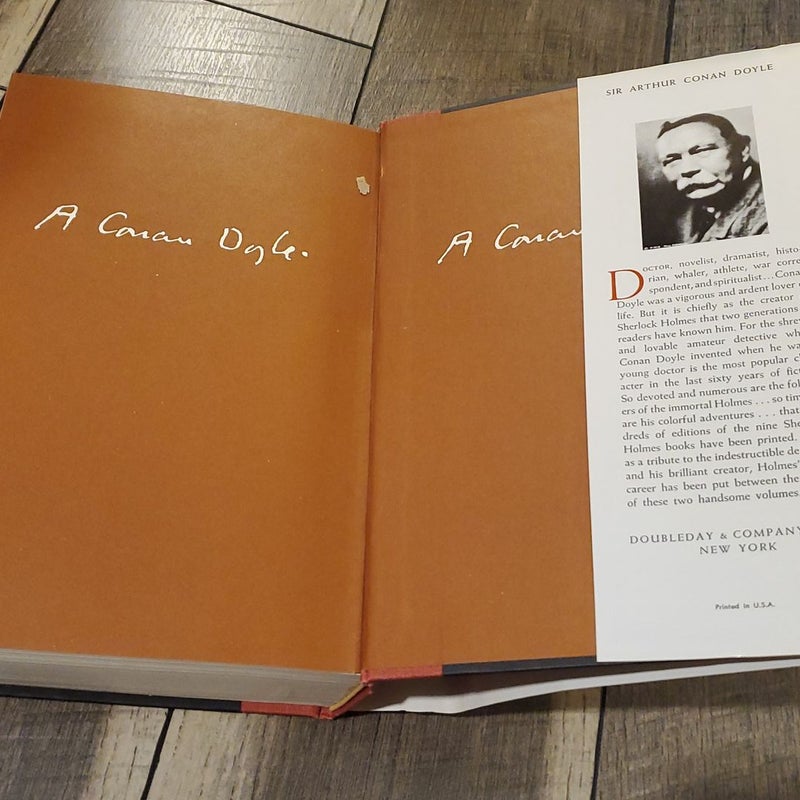 A Conan Doyle.
A Conan
SIR ARTHUR CONAN DOYLE
DOCTOR, novelist, dramatist, histo
rian, whaler, athlete, war corre
spondent, and spiritualist... Cona
Doyle was a vigorous and ardent lover
life. But it is chiefly as the creator
Sherlock Holmes that two generations
readers have known him. For the shre
and lovable amateur detective wh
Conan Doyle invented when he wa
young doctor is the most popular c
acter in the last sixty years of fic
So devoted and numerous are the fol
ers of the immortal Holmes . . . so tim
are his colorful adventures . . . that
dreds of editions of the nine She
Holmes books have been printed.
as a tribute to the indestructible de
and his brilliant creator, Holmes'
career has been put between the
of these two handsome volumes
DOUBLEDAY & COMPANY
NEW YORK
Printed in U.S.A.